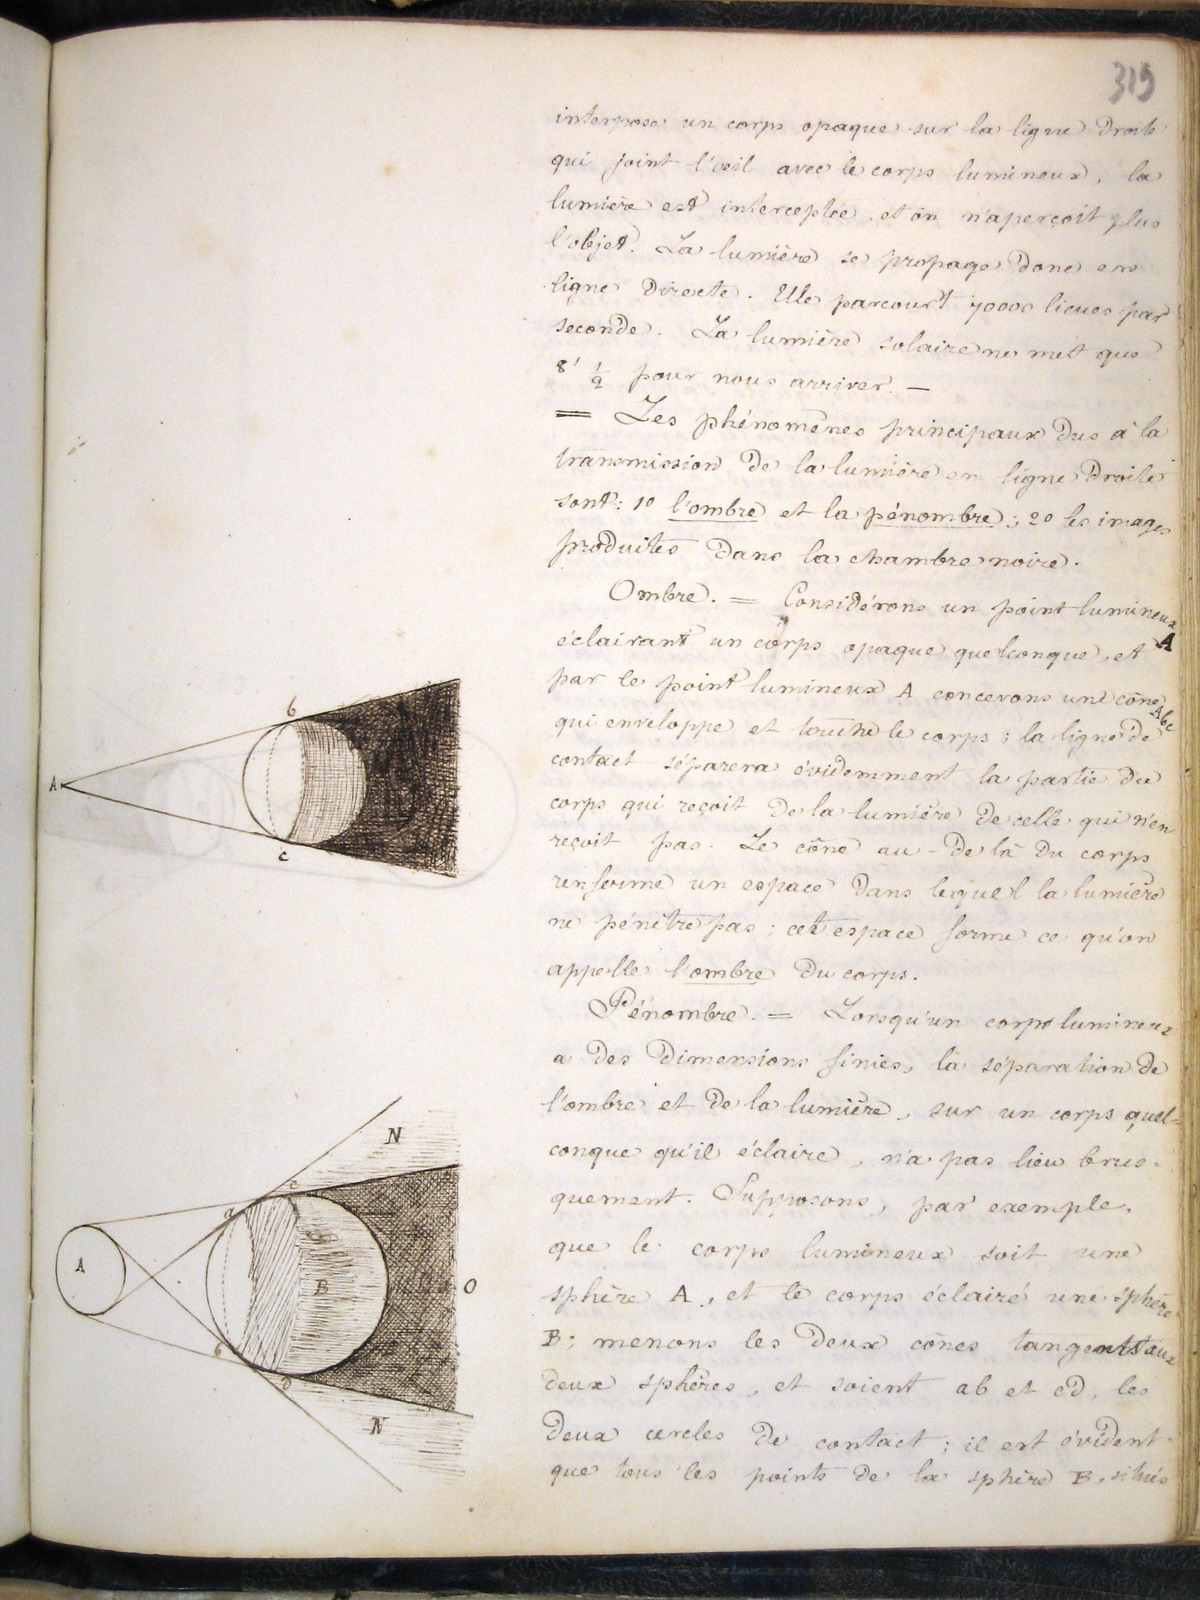 319
interpose un corps opaque sur la ligne droite
qui joint l'œil avec le corps lumineux, la
lumière est interceptée, et on n'aperçoit plus
l'objet. La lumière se propage donc en
ligne directe. Elle parcourt 70000 lieues par
seconde. La lumière solaire ne met que
8' 1/2 pour nous arriver. —
= Les phénomènes principaux dus à la
transmission de la lumière en ligne droite
sont: 1o l'ombre et la pénombre; 2o les images
produites dans la chambre noire.
Ombre. = Considérons un point lumineux A
éclairant un corps opaque quelconque, et
par le point lumineux A concevons un cône Abc
qui enveloppe et touche le corps; la ligne de
contact séparera évidemment la partie du
corps qui reçoit de la lumière de celle qui n'en
reçoit pas. Le cône au-delà du corps
renferme un espace dans lequel la lumière
ne pénètre pas; cet espace forme ce qu'on
appelle l'ombre du corps.
Pénombre. = Lorsqu'un corps lumineux
a des dimensions finies, la séparation de
l'ombre et de la lumière, sur un corps quel-
conque qu'il éclaire, n'a pas lieu brus-
quement. Supposons, par exemple,
que le corps lumineux soit une
sphère A, et le corps éclairé une sphère
B; menons les deux cônes tangents aux
deux sphères, et soient ab et cd, les
deux cercles de contact; il est évident
que tous les points de la sphère B, situés
b
A
c
N
c
a
A
B
O
b
d
N